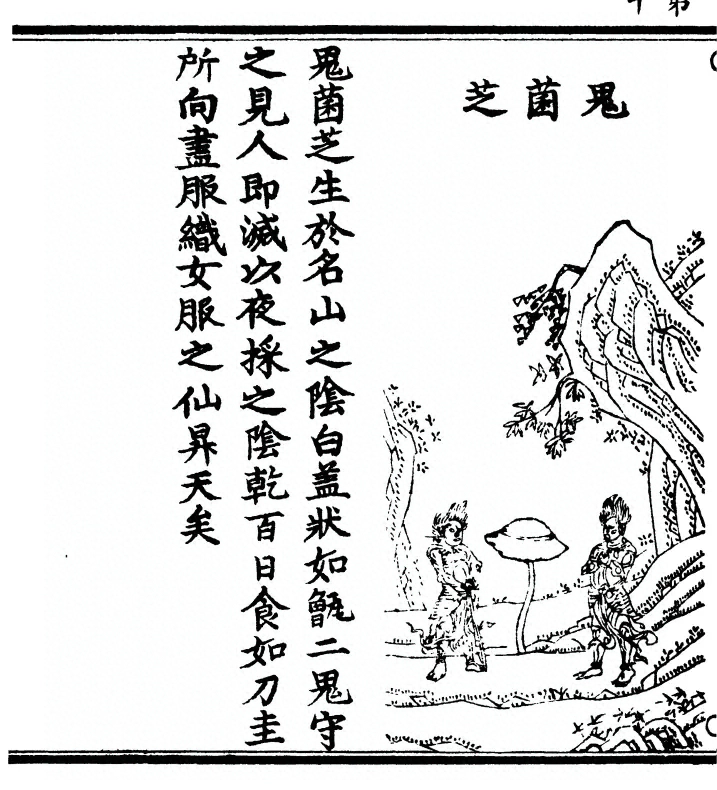 鬼菌芝
鬼菌芝生於名山之陰白盖狀如甑二鬼守
之見人即滅以夜採之陰乾百日食如刀圭
所向盡服織女服之仙昇天矣